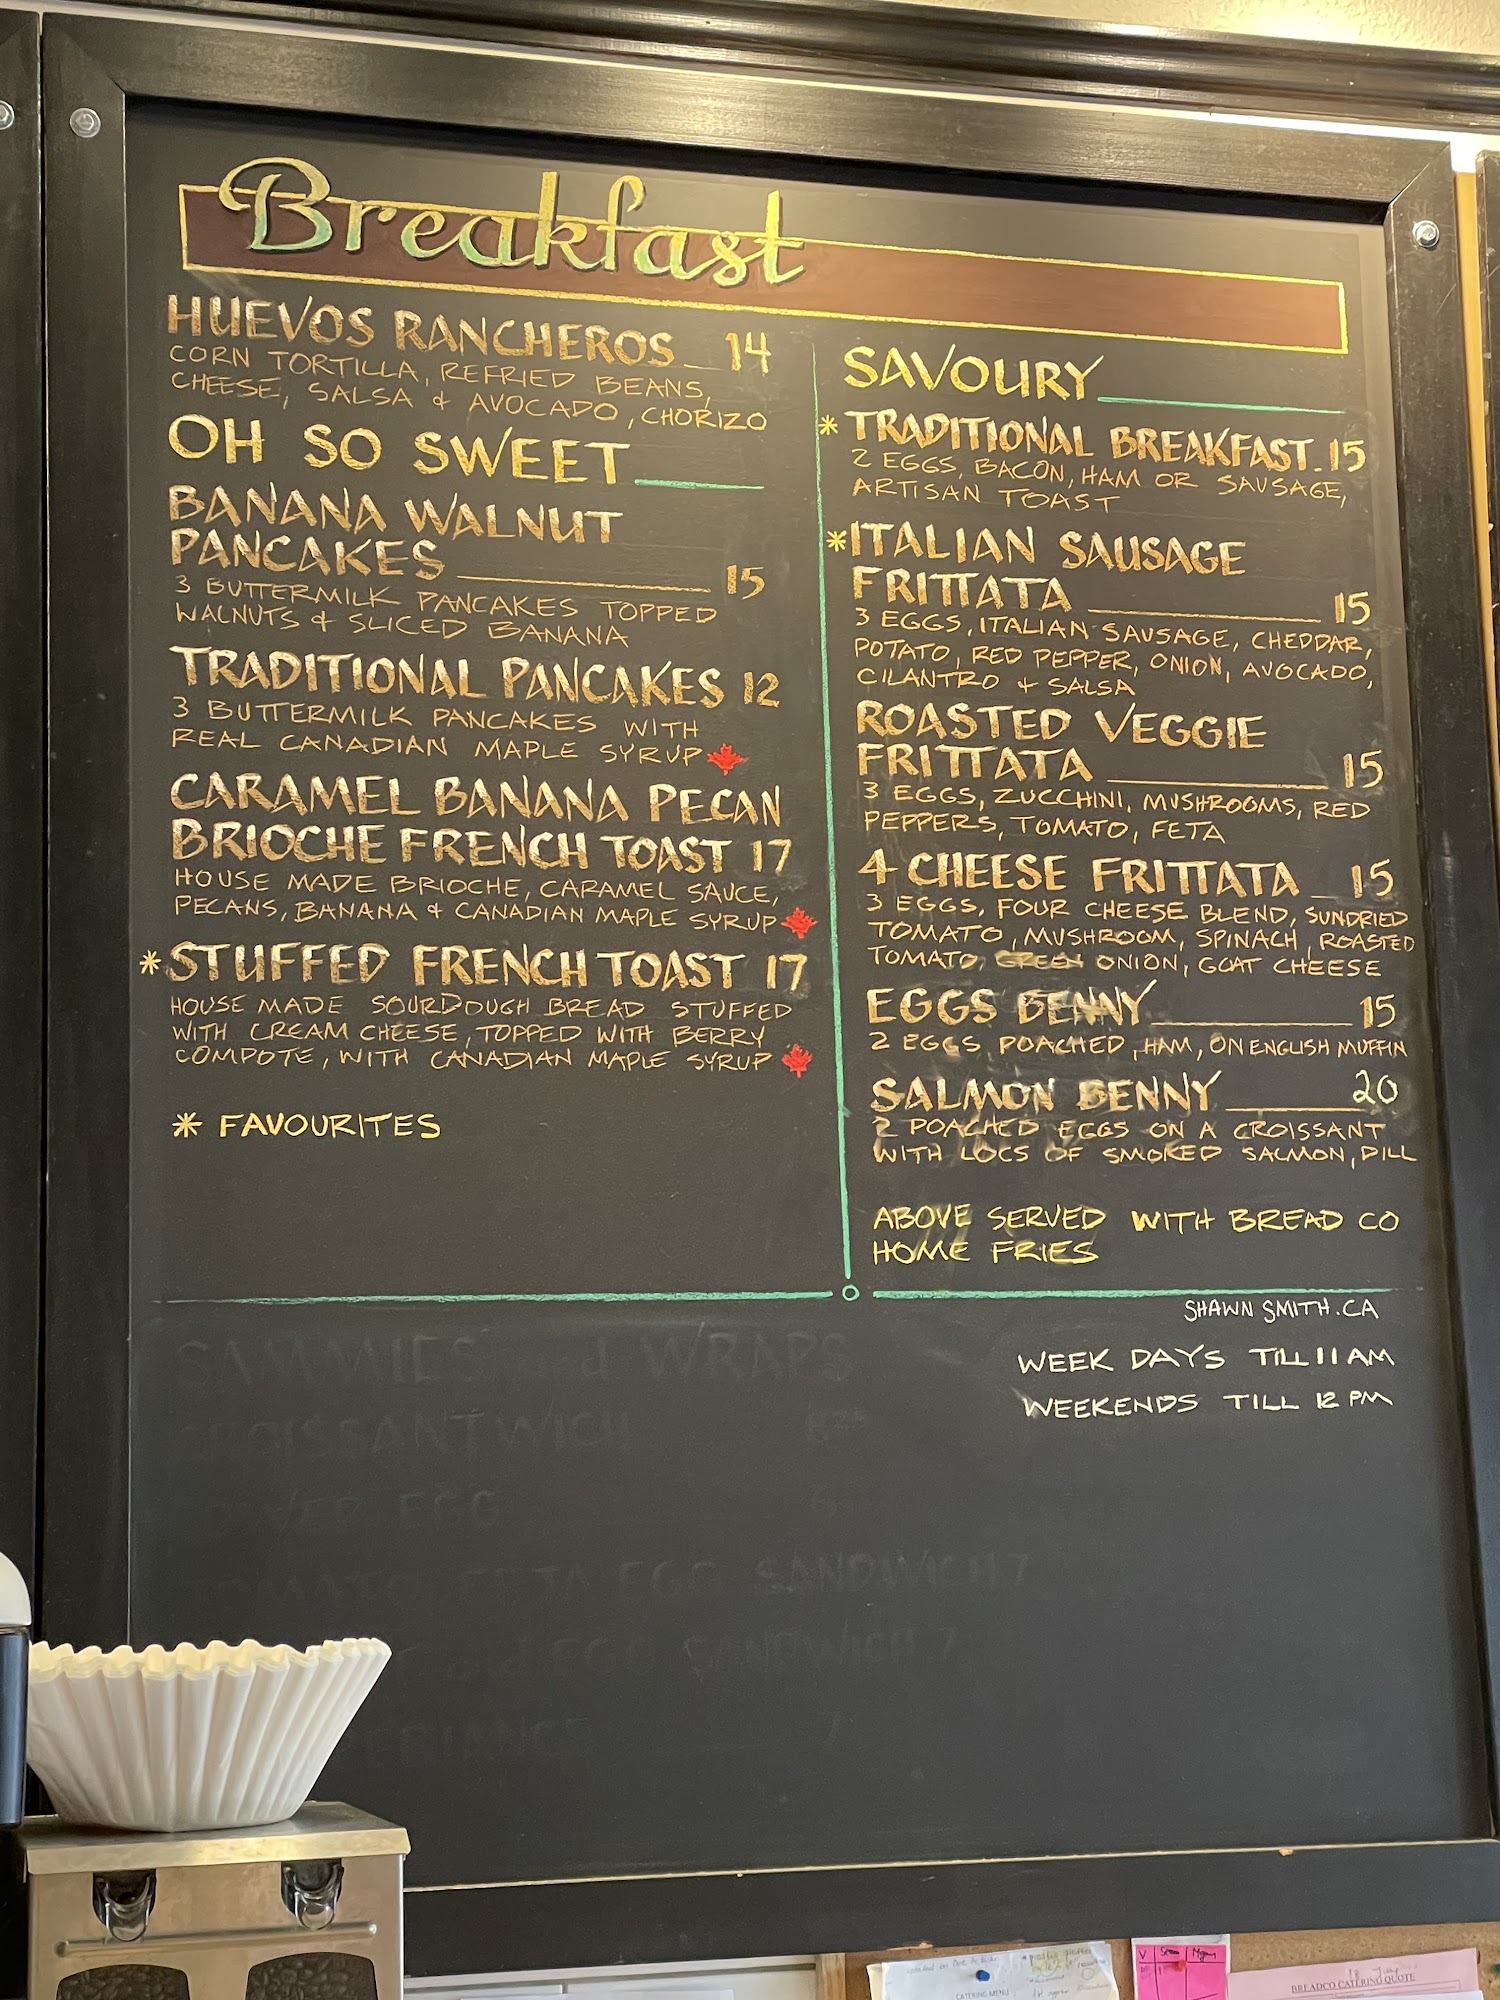 Breakfast
HUEVOS RANCHEROS 14
CORN TORTILLA, REFRIED BEANS,
CHEESE, SALSA & AVOCADO, CHORIZO
OH SO SWEET
BANANA WALNUT
PANCAKES 15
3 BUTTERMILK PANCAKES TOPPED
WALNUTS & SLICED BANANA
TRADITIONAL PANCAKES 12
3 BUTTERMILK PANCAKES WITH
REAL CANADIAN MAPLE SYRUP
CARAMEL BANANA PECAN
BRIOCHE FRENCH TOAST 17
HOUSE MADE BRIOCHE, CARAMEL SAUCE,
PECANS, BANANA & CANADIAN MAPLE SYRUP
* STUFFED FRENCH TOAST 17
HOUSE MADE SOURDOUGH BREAD STUFFED
WITH CREAM CHEESE, TOPPED WITH BERRY
COMPOTE, WITH CANADIAN MAPLE SYRUP
* FAVOURITES
SAVOURY
* TRADITIONAL BREAKFAST 15
2 EGGS, BACON, HAM OR SAUSAGE,
ARTISAN TOAST
* ITALIAN SAUSAGE
FRITTATA 15
3 EGGS, ITALIAN SAUSAGE, CHEDDAR,
POTATO, RED PEPPER, ONION, AVOCADO,
CILANTRO & SALSA
ROASTED VEGGIE
FRITTATA 15
3 EGGS, ZUCCHINI, MUSHROOMS, RED
PEPPERS, TOMATO, FETA
4 CHEESE FRITTATA 15
3 EGGS, FOUR CHEESE BLEND, SUNDRIED
TOMATO, MUSHROOM, SPINACH, ROASTED
TOMATO, GREEN ONION, GOAT CHEESE
EGGS BENNY 15
2 EGGS POACHED, HAM, ON ENGLISH MUFFIN
SALMON BENNY 20
2 POACHED EGGS ON A CROISSANT
WITH LOCS OF SMOKED SALMON, DILL
ABOVE SERVED WITH BREAD CO
HOME FRIES
SHAWN SMITH.CA
WEEK DAYS TILL 11 AM
WEEKENDS TILL 12 PM
SAMMIES and WRAPS
CROISSANTWICH
EGG
EGG SANDWICH 7
EGG SANDWICH 7
CATERING MENU
BREADCO CATERING QUOTE